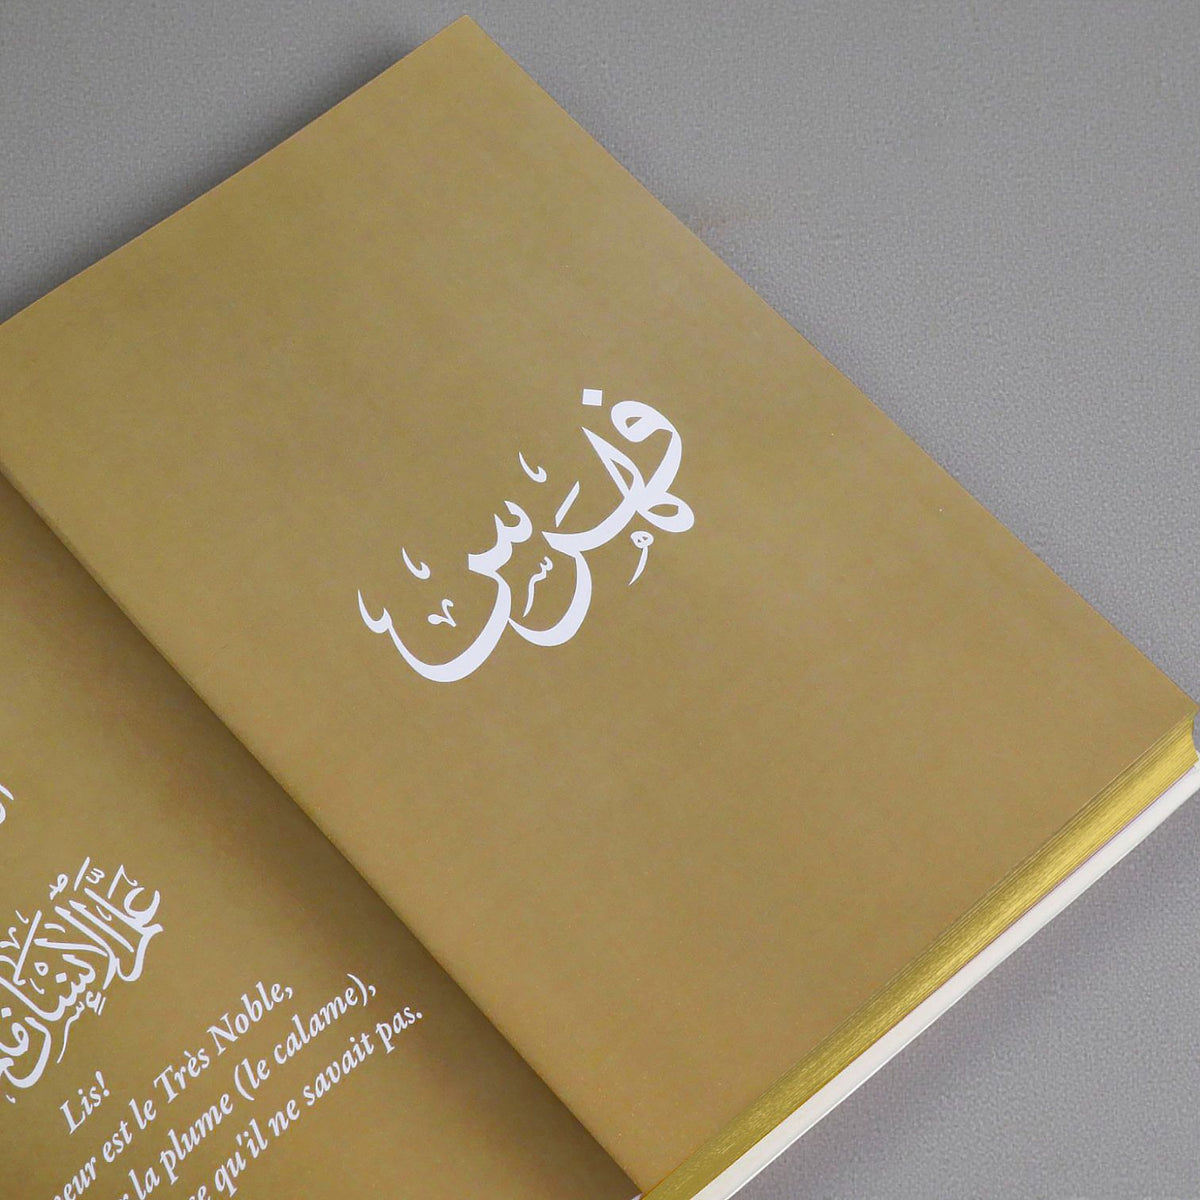 فهرس
علم الإنسان
Lis!
est le Très Noble,
la plume (le calame),
qu'il ne savait pas.